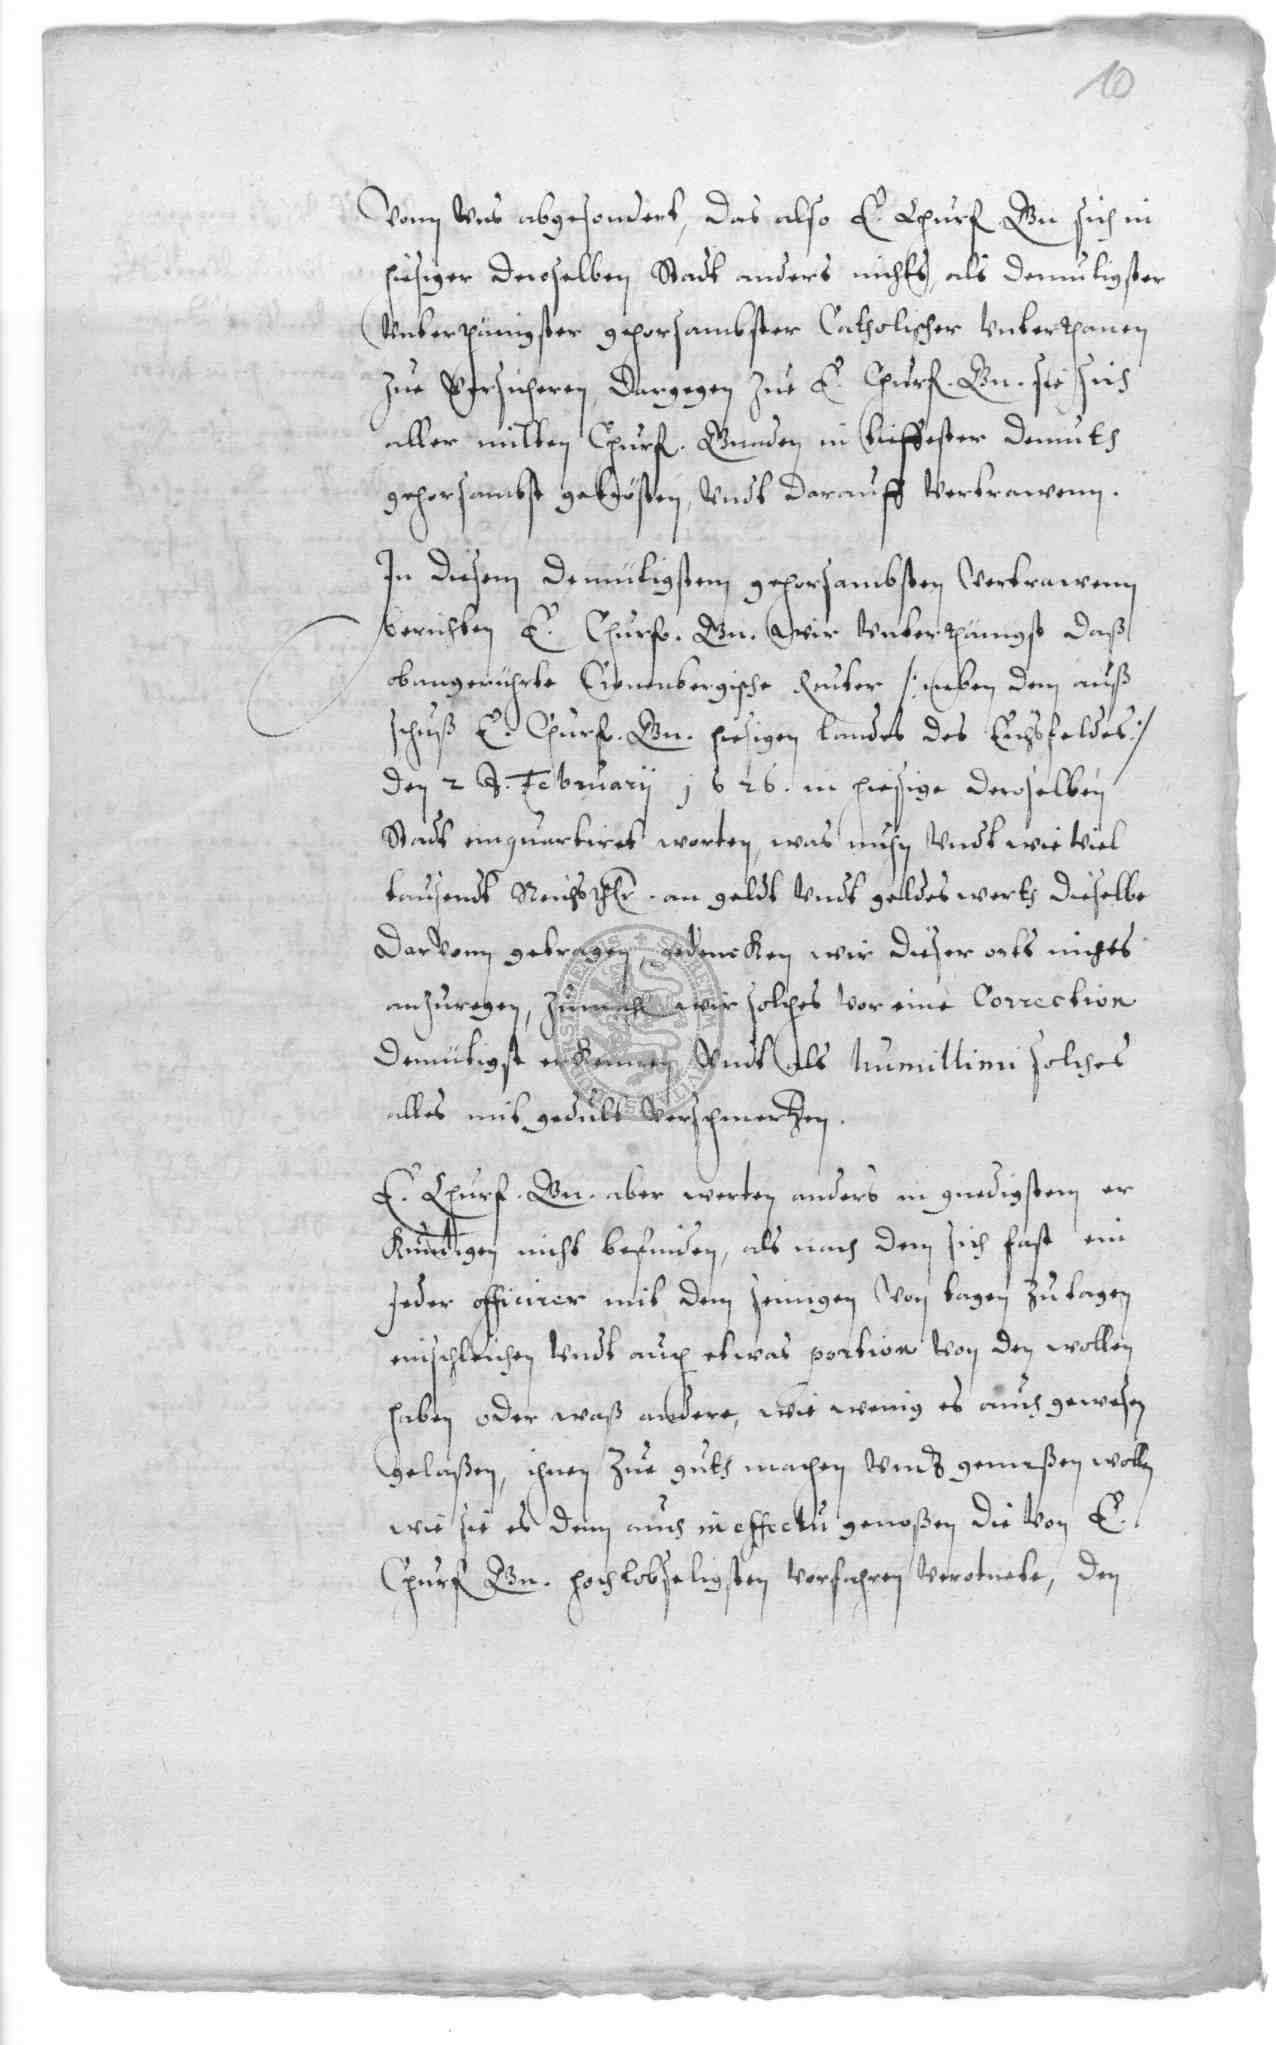 10
Vonn Vns abgesondert, das also E. Churf. Gn. sich in
hiesiger deroselben Stadt anders nichts, als demutigster
Vnterthänigster gehorsambster Catholischer Vnterthanen
zue Versicheren, dargegen zue E. Churf. Gn. sie sich
aller milten Churf. Gnaden in tieffester demuth
gehorsambst getrösten, Vndt darauff Vertrawenn.
In diesem demütigstem gehorsambsten Vertrawenn
berichten E. Churf. Gn. wir Vnterthänigst daß
obangerührte Cronenbergische Reuter /: neben dem auß
schuß E. Churf. Gn. hiesigen landes des Eichsfeldes :/
den 2 Februarij 1626. in hiesige deroselben
Stadt einquartiret worten, was nuhn Vndt wie Viel
tausendt Reichsthlr. an geldt Vndt geldes werth dieselbe
darVonn getragen, gedencken wir dieser orts nichts
anzuregen, wir solches Vor eine Correction
demütigst erkennen Vndt als humillimi solches
alles mit gedult Verschmertzen.
E. Churf. Gn. aber werten anders in gnedigstem er
kundigen nicht befinden, als nach dem sich fast ein
Jeder officirer mit dem seinigen Von tagen zu tagen
einschleichen Vndt auch etwas portion Von den wollen
haben oder waß andere, wie wenig es auch gewesen
gelaßen, ihnen zue guth machen Vndt genießen wolln
wie sie es denn auch in effectu genoßen die Von E.
Churf Gn. hochlobseligsten Vorfahren Verotnete, den